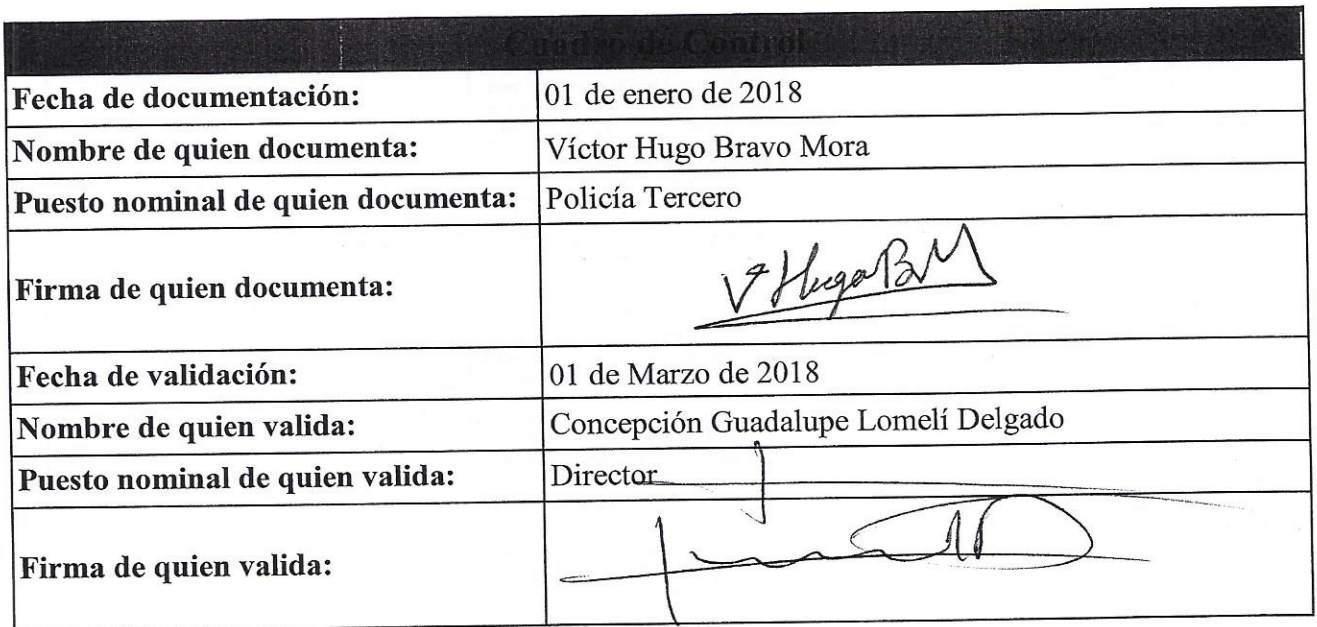 Cuadro de Control
Fecha de documentación: 01 de enero de 2018
Nombre de quien documenta: Víctor Hugo Bravo Mora
Puesto nominal de quien documenta: Policía Tercero
Firma de quien documenta: V Hugo BM
Fecha de validación: 01 de Marzo de 2018
Nombre de quien valida: Concepción Guadalupe Lomelí Delgado
Puesto nominal de quien valida: Director
Firma de quien valida: